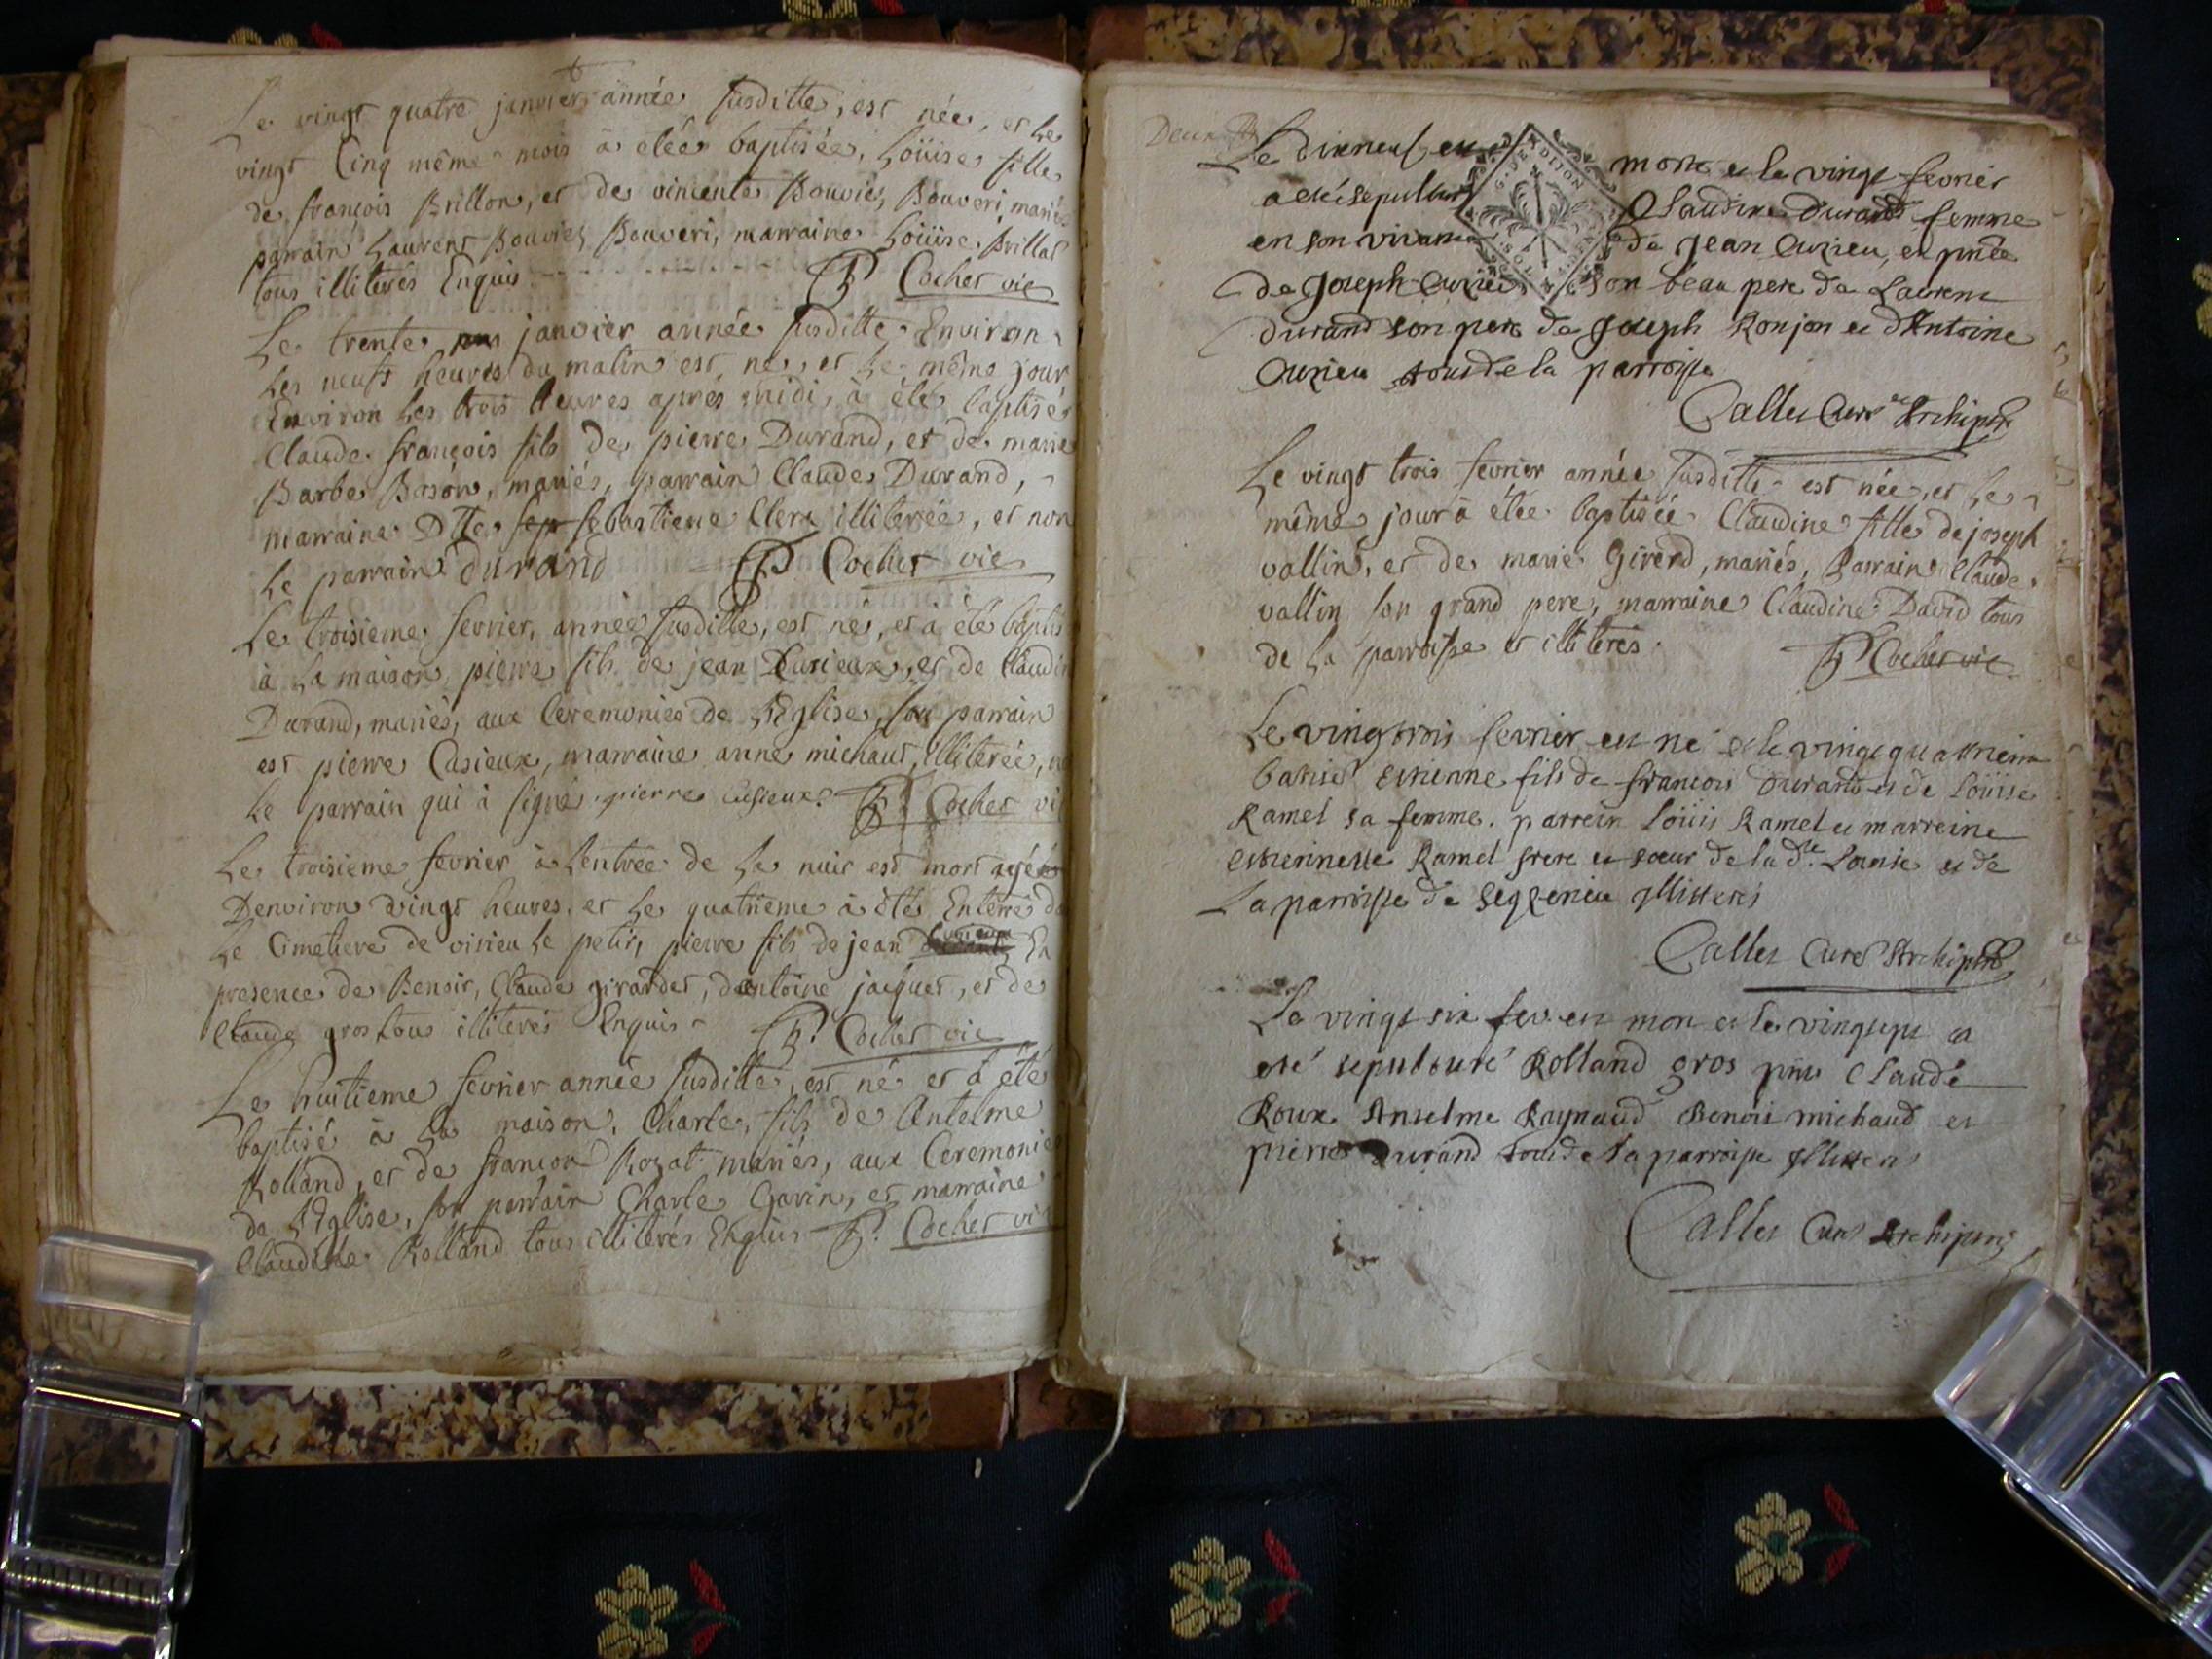 Le vingt quatre janvier année susditte, est née, et le
vingt Cinq même mois à étée baptisée, Loüise fille
de françois Brillon, et de vincente Bouvier Bouveri, mariés
parrain Laurent Bouvier Bouveri, marraine Loüise Brillat
tous illiterés Enquis Cochet vic
Le trente janvier année susditte Environ
Les neufs heures du matin est né, et Le même jour
Environ Les trois heures aprés midi, à été baptisé
Claude françois fils de pierre Durand, et de marie
Barbe Boson, mariés, parrain Claude Durand,
marraine Dlle sebastiene Clerc illiterée, et non
Le parrain durand Cochet vic
Le troisieme fevrier, année susditte, est né, et à été baptis
à La maison, pierre fils de jean Curieux, et de Claudin
Durand, mariés, aux Ceremonies de L'Eglise, son parrain
est pierre Cusieux, marraine anne michaut, illiterée, n
Le parrain qui à signé pierre cusieux Cochet vi
Le troisieme fevrier à L'entrée de La nuit est mort agé
Denviron vingt heures, et Le quatrieme à été Enterré da
Le Cimetiere de virieu Le petit, pierre fils de jean En
presence de Benoit, Claude girardet, d'antoine jacquet, et de
Claude gros tous illiterés Enquis Cochet vic
Le huitieme fevrier année susditte, est né et à été
baptisé à La maison, Charle, fils de Antelme
Rolland, et de françoi Rozat mariés, aux Ceremonie
de L'Eglise, son parrain Charle Gavin, et marraine
Claudine Rolland tous illiterés Enquis Cochet vi
Le dixneuf est morte et le vingt fevrier
a eté sepulturé Claudine Durand femme
en son vivant de Jean Curieu, et pntce
G. DE DIJON
de Joseph Curieu son beau pere de Laurent
durand son pere de Joseph Ronjon et d'Antoine
Curieu tous de la parroisse
Callet Curé et Archiptre
Le vingt trois fevrier année susditte est née, et Le
même jour à étée baptisée Claudine fille de joseph
vallin, et de marie Girerd, mariés, Parrain Claude
vallin son grand pere, marraine Claudine David tous
de La parroisse et illiterés. Cochet vic
Le vingtrois fevrier est né et le vingtquatrieme
batisé Estienne fils de françois Durand et de Loüise
Ramel sa femme. parrein Loüis Ramel et marreine
Estiennette Ramel frere et soeur de lad.te Louise et de
La parroisse de Segzerieu jllitteres
Callet Curé Archiptre
Le vingt six fev. est mort et le vingtsept a
eté sepulturé Rolland gros pnts Claude
Roux Anselme Raynaud Benoit michaud et
pierre Durand tous de la parroisse jllitteres
Callet Curé Archiptre